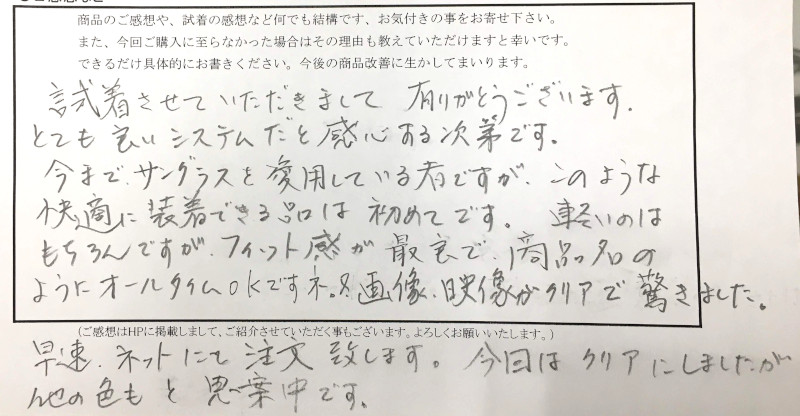 商品のご感想や、試着の感想など何でも結構です、お気付きの事をお寄せ下さい。
また、今回ご購入に至らなかった場合はその理由も教えていただけますと幸いです。
できるだけ具体的にお書きください。今後の商品改善に生かしてまいります。
試着させていただきまして 有りがとうございます.
とても良いシステムだと感心する次第です。
今まで、サングラスを愛用している者ですが、このような
快適に装着できる品は初めてです。 軽いのは
もちろんですが、フィット感が最良で、商品名の
ようにオールタイムOKですネ。画像、映像がクリアで驚きました。
(ご感想はHPに掲載しまして、ご紹介させていただく事もございます。よろしくお願いいたします。)
早速、ネットにて注文致します。 今回はクリアにしましたが
他の色もと思案中です。